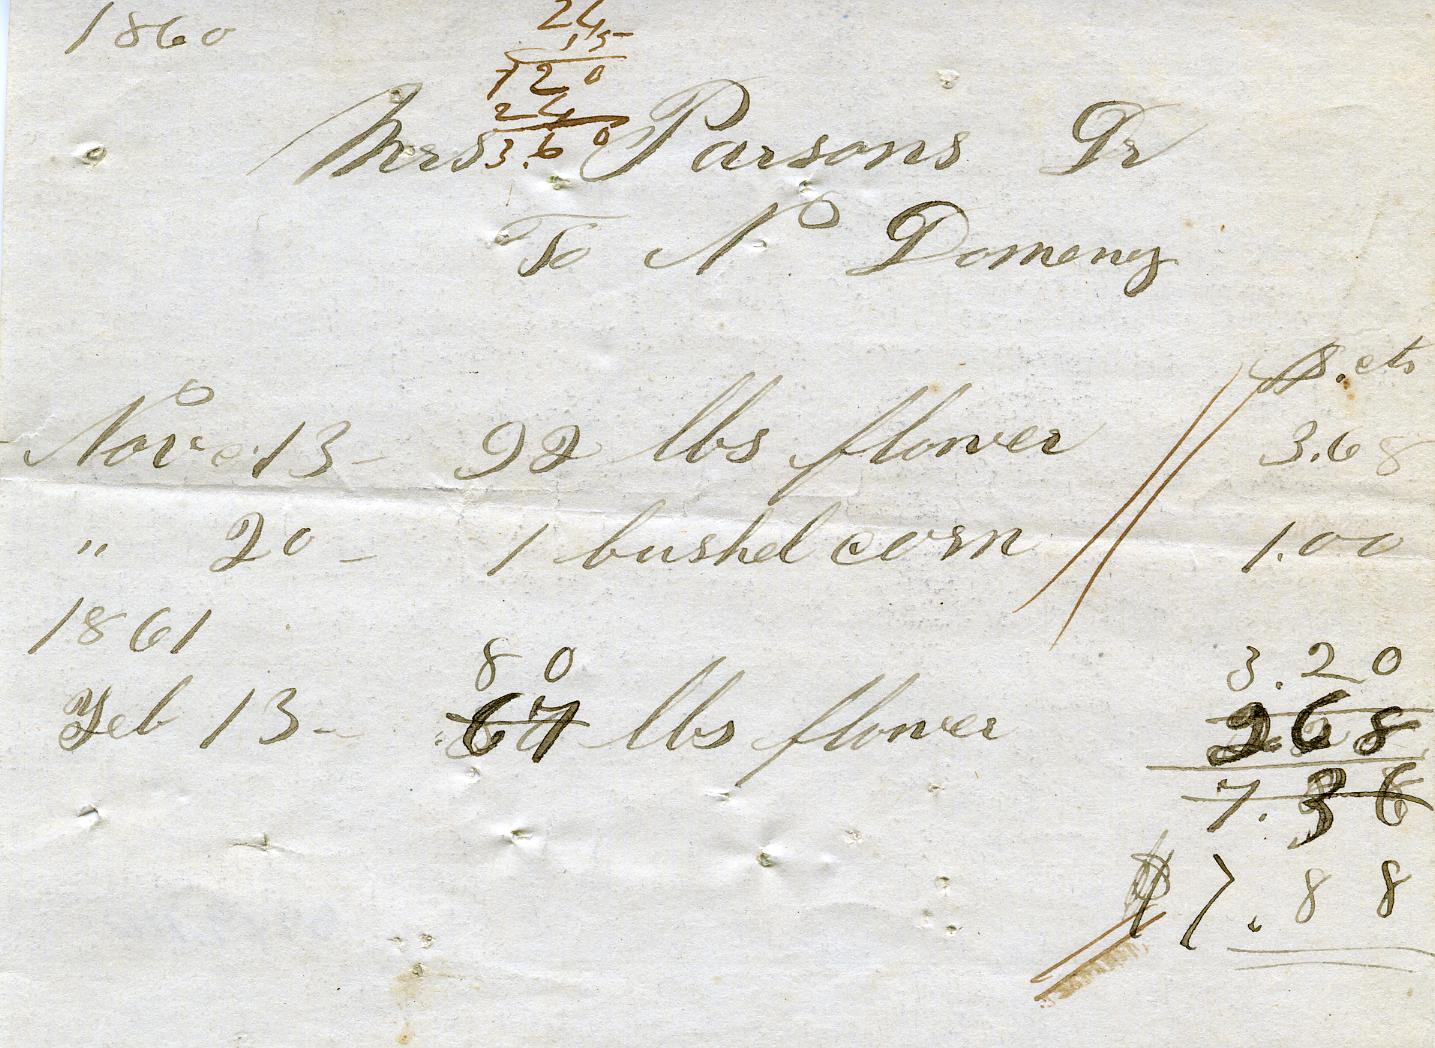 1860
24
15
120
24
3.60
Mrs Parsons Dr
To N Domeny
$.cts
Nov 13 - 92 lbs flower 3.68
" 20 - 1 bushel corn 1.00
1861
80 3.20
Feb 13 - 67 lbs flower 268
7.36
$7.88